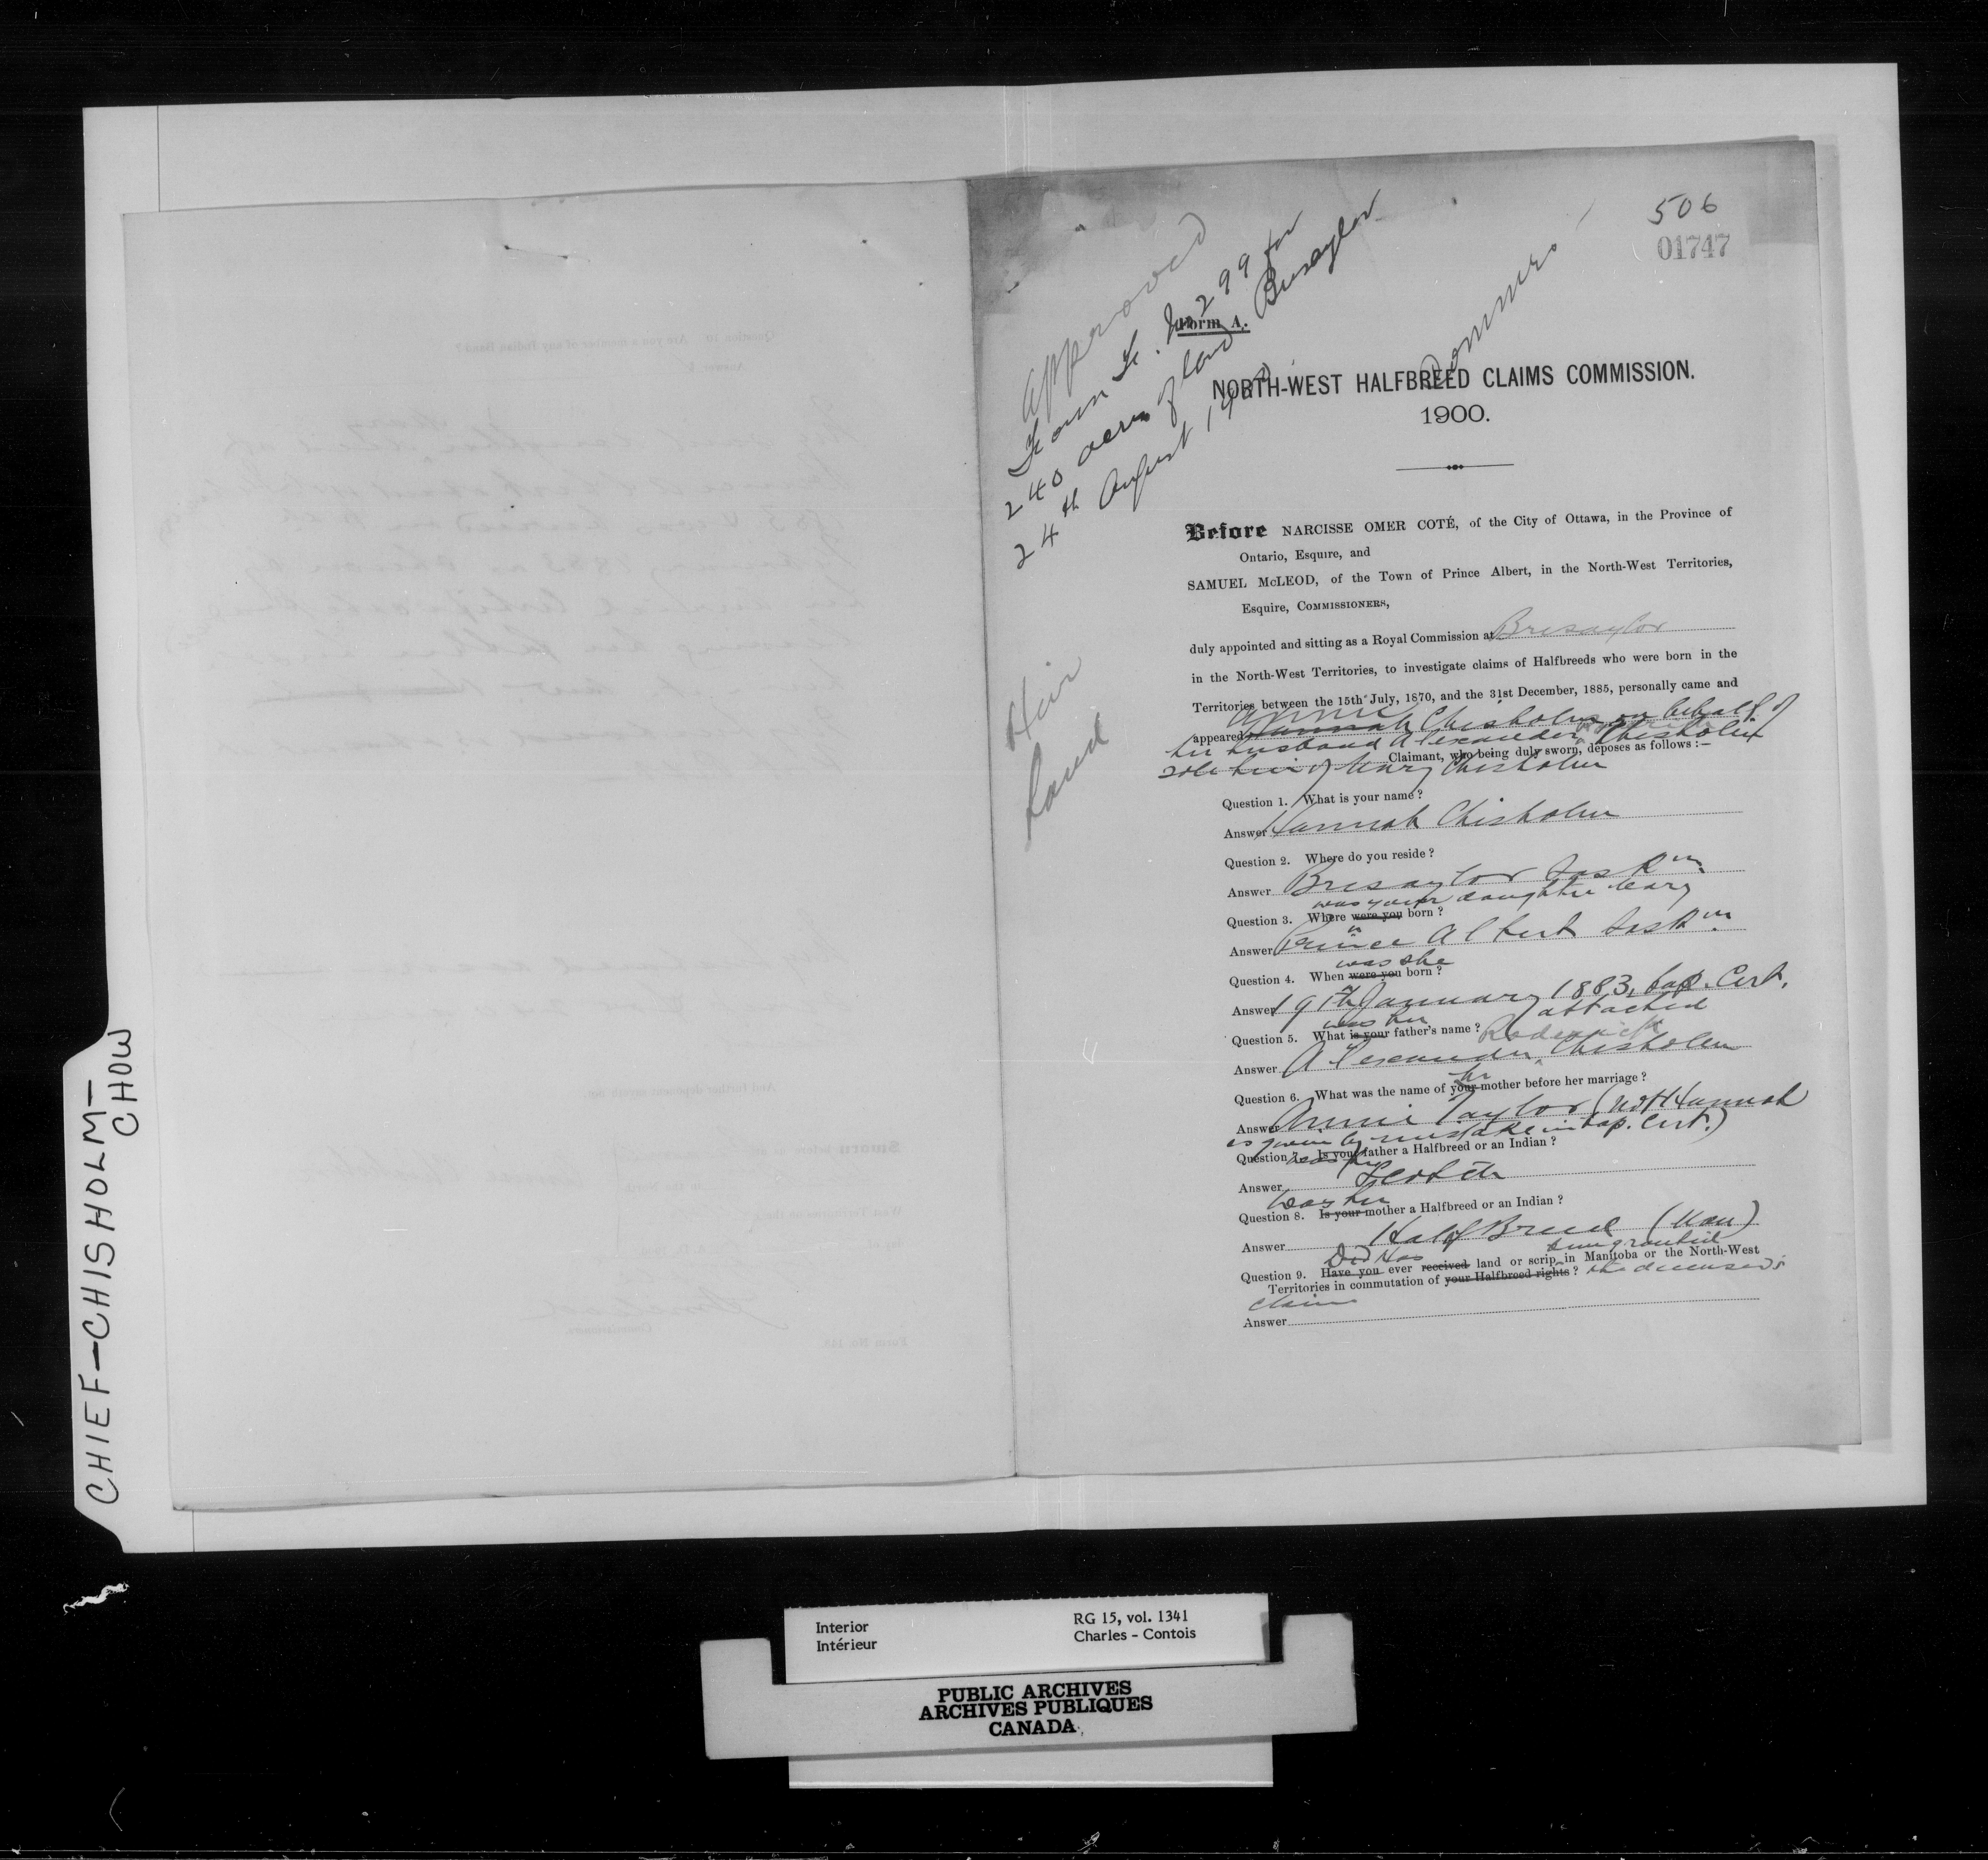 506
01747
Approved
Form F. No 299 for
240 acres of land
24th August 1900 Bresaylor
Form A.
NORTH-WEST HALFBREED CLAIMS COMMISSION.
1900.
Before NARCISSE OMER COTÉ, of the City of Ottawa, in the Province of
Ontario, Esquire, and
SAMUEL McLEOD, of the Town of Prince Albert, in the North-West Territories,
Esquire, COMMISSIONERS,
duly appointed and sitting as a Royal Commission at Bresaylor
in the North-West Territories, to investigate claims of Halfbreeds who were born in the
Territories between the 15th July, 1870, and the 31st December, 1885, personally came and
Annie
appeared Hannah Chisholm on behalf of
her husband Alexander Chisholm
Claimant, who being duly sworn, deposes as follows :—
sole heir of Mary Chisholm
Heir
Land
Question 1. What is your name?
Answer Hannah Chisholm
Question 2. Where do you reside?
Answer Bresaylor Sask n.
was your daughter Mary
Question 3. Where were you born?
Answer Prince Albert Sask n.
was she
Question 4. When were you born?
Answer 19th January 1883, bap. Cert.
attached
was her
Question 5. What is your father's name?
Roderick
Answer Alexander Chisholm
her
Question 6. What was the name of your mother before her marriage?
Answer Annie Taylor (not Hannah
as given by mistake in bap. Cert.)
Question 7. Is your father a Halfbreed or an Indian?
was her
Answer Scotch
Was her
Question 8. Is your mother a Halfbreed or an Indian?
Answer Half Breed (Man)
Did Has been granted
Question 9. Have you ever received land or scrip in Manitoba or the North-West
Territories in commutation of your Halfbreed rights? the deceased's
claim
Answer
CHIEF-CHISHOLM-
CHOW
Interior
Intérieur
RG 15, vol. 1341
Charles - Contois
PUBLIC ARCHIVES
ARCHIVES PUBLIQUES
CANADA